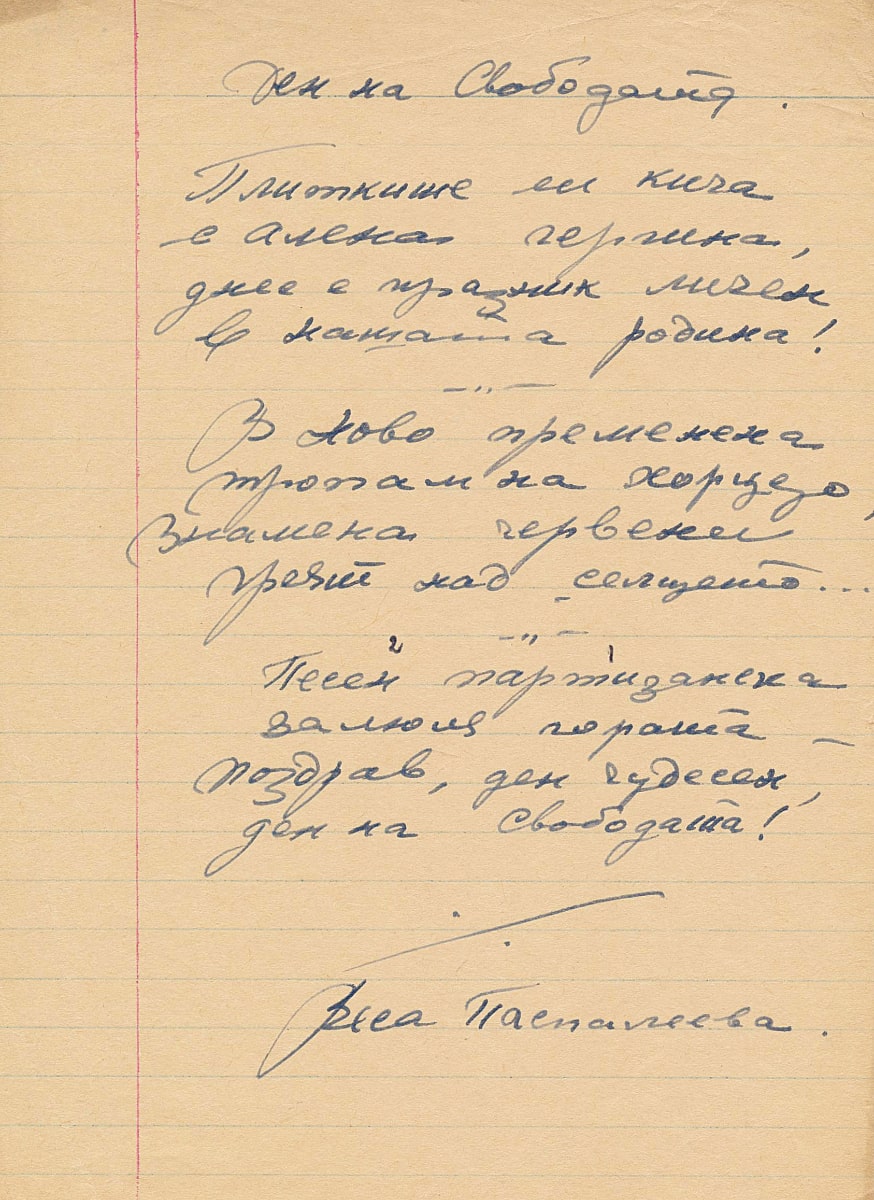 Ден на Свободата.
Плитките си кича
с алена гергина,
днес е празник личен
в нашата родина!
—„—
В ново пременена
тропам на хорцето,
Знамена червени
греят над селцето...
—„—
2 1
Песен партизанска
залюля гората —
поздрав, ден чудесен,
ден на Свободата!
Веса Паспалеева.